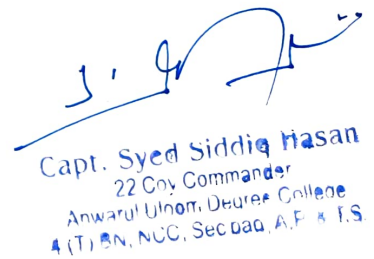 Capt. Syed Siddiq Hasan
22 Coy Commander
Anwarul Uloom, Degree College
4 (T) BN, NCC, Sec bad, A.P & T.S.